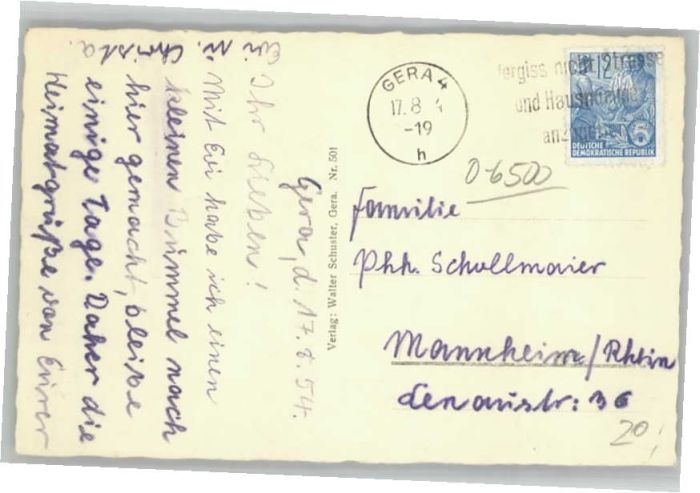 Gera, d. 17.8.54.
Ihr Lieben!
Mit Evi habe ich einen
kleinen Bummel nach
hier gemacht, bleibe
einige Tage. Daher die
Heimatgrüße von Eurer
Christa.
Verlag: Walter Schuster, Gera. Nr. 501
GERA 4
17.8
-19
h
Vergiss nicht Strasse
und Hausnummer
12
DEUTSCHE
DEMOKRATISCHE REPUBLIK
0-6500
Familie
Phh. Schollmaier
Mannheim/Rhein
Lenaustr: 36
20,